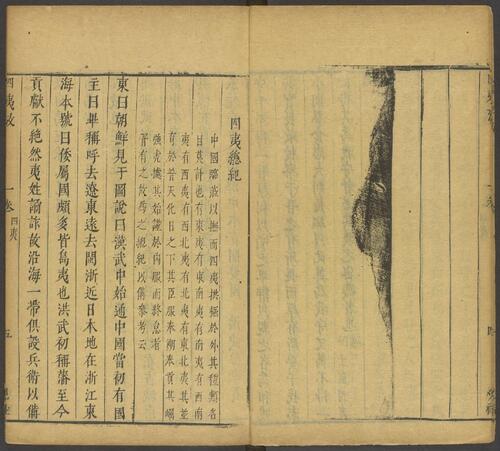 四夷總紀
中國臨莅以撫而四夷拱極於外其種類名
曰莫計也有東夷有東南夷有南夷有西南
夷有西夷有西北夷有北夷有東北夷其並
育於普天化日之下其臣服來朝來貢其崛
強虎據其始議於內服而終怠者
皆有之故為之總紀以備參考云
東曰朝鮮見于圖說曰漢武中始通中國當初有國
主曰畢稱呼去遼東遠去閩浙近日木地在浙江東
海本號曰倭屬國頗多皆島夷也洪武初稱藩至今
貢獻不絶然夷姓譎詐故沿海一帶俱設兵衛以備
四夷攷
一卷
四夷
五